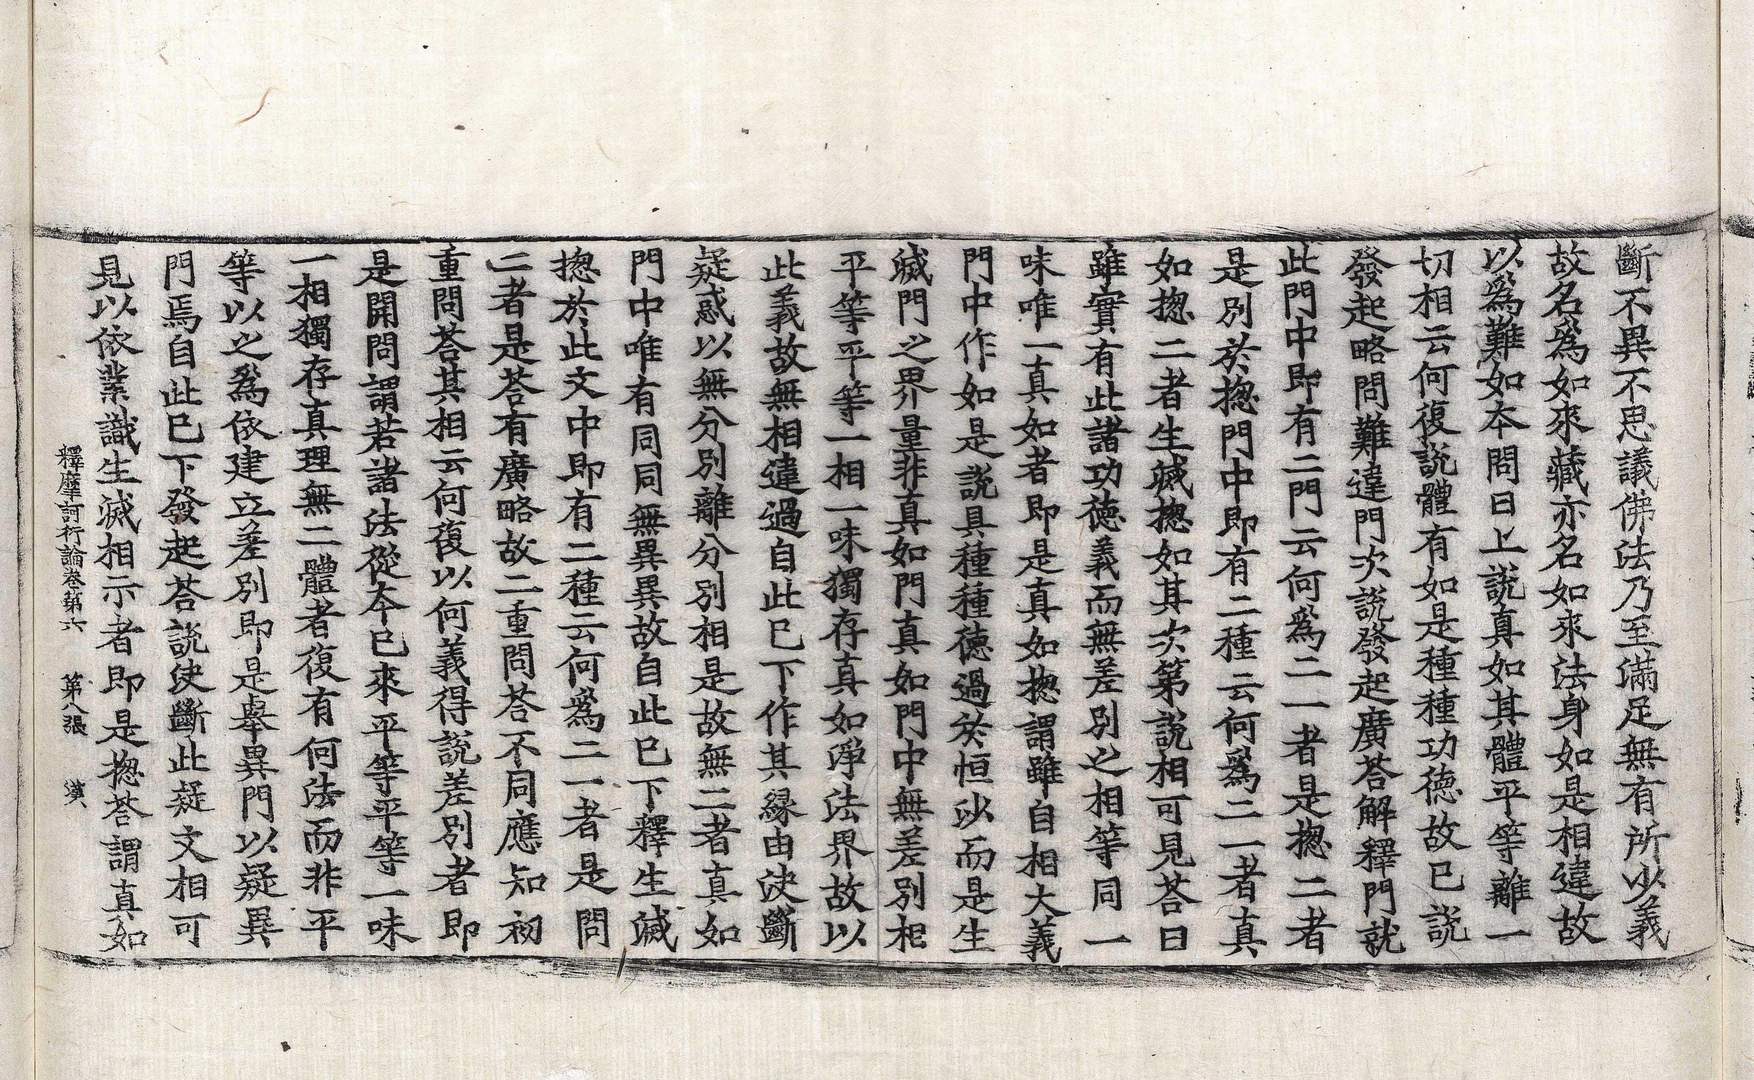 斷不異不思議佛法乃至滿足無有所少義
故名爲如來藏亦名如來法身如是相違故
以爲難如本問曰上說真如其體平等離一
切相云何復說體有如是種種功德故已說
發起略問難違門次說發起廣荅解釋門就
此門中即有二門云何爲二一者是揔二者
是別於揔門中即有二種云何爲二一者真
如揔二者生滅揔如其次第說相可見荅曰
雖實有此諸功德義而無差別之相等同一
味唯一真如者即是真如揔謂雖自相大義
門中作如是說具種種德過於恒沙而是生
滅門之界量非真如門真如門中無差別相
平等平等一相一味獨存真如淨法界故以
此義故無相違過自此已下作其縁由決斷
疑惑以無分別離分別相是故無二者真如
門中唯有同同無異異故自此已下釋生滅
揔於此文中即有二種云何爲二一者是問
二者是荅有廣略故二重問荅不同應知初
重問荅其相云何復以何義得說差別者即
是開問謂若諸法從本已來平等平等一味
一相獨存真理無二體者復有何法而非平
等以之爲依建立差別即是舉異門以疑異
門焉自此已下發起荅說決斷此疑文相可
見以依業識生滅相示者即是揔荅謂真如
釋摩訶衍論卷第六　第八張　漢